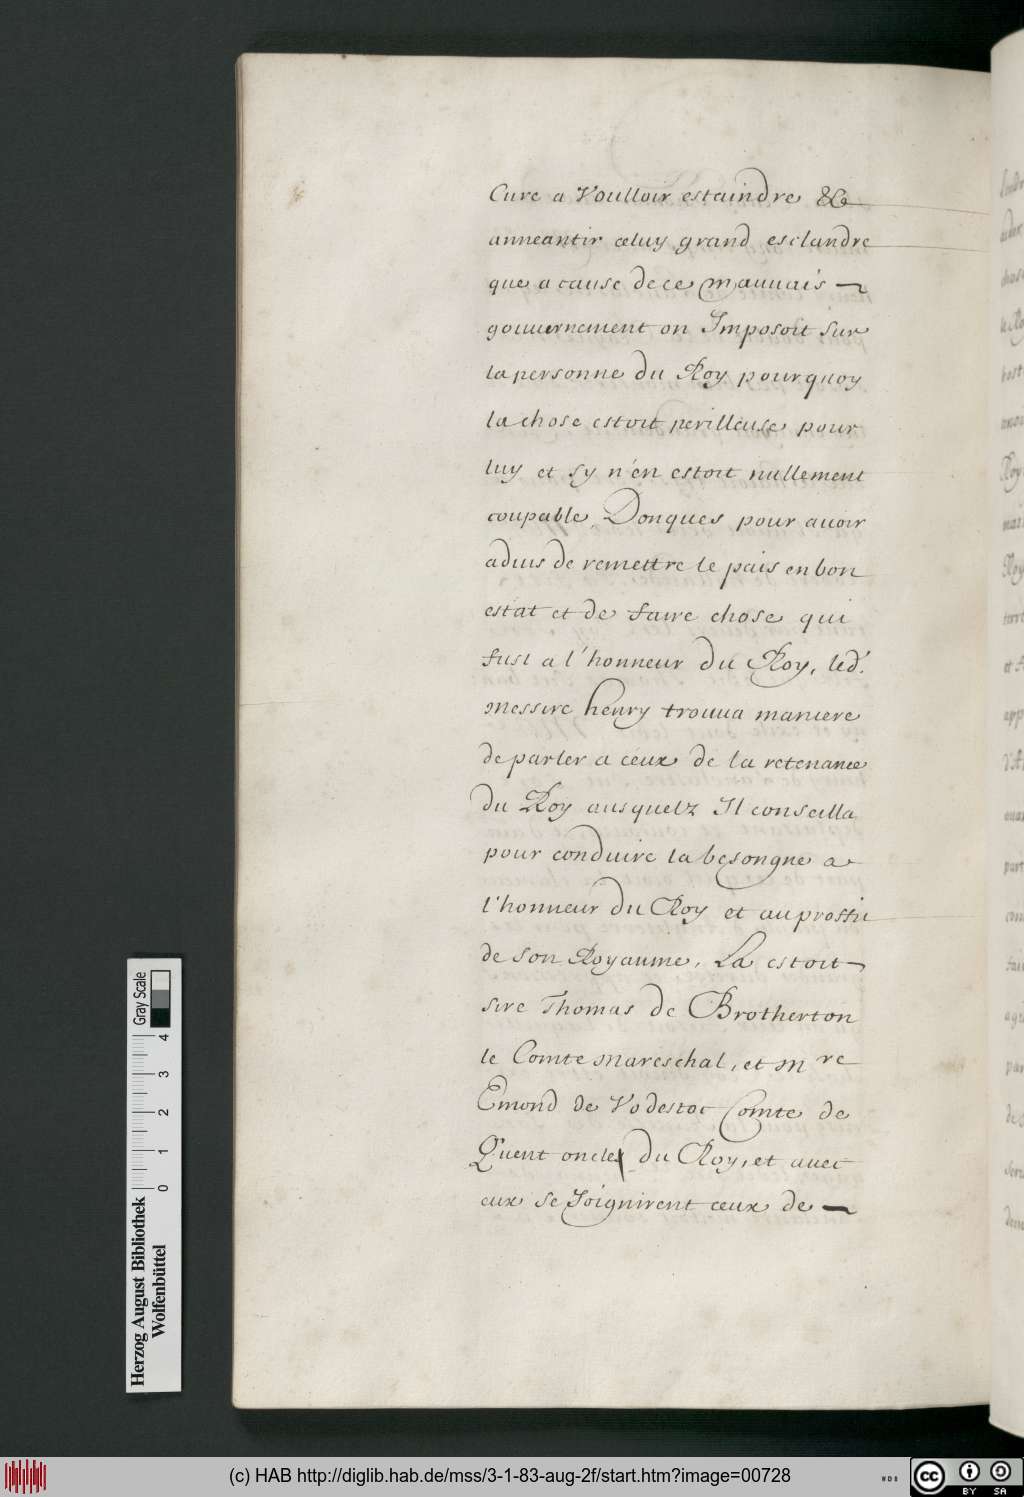 Cure a Voulloir estaindre &
anneantir celuy grand esclandre
que a cause de ce mauuais
gouuernement on Imposoit sur
la personne du Roy pourquoy
la chose estoit perilleuse pour
luy et sy n'en estoit nullement
coupable. Donques pour auoir
aduis de remettre le pais en bon
estat et de faire chose qui
fust a l'honneur du Roy, led.
messire henry trouua maniere
de parler a ceux de la retenance
du Roy ausquelz Il conseilla
pour conduire la besongne a
l'honneur du Roy et au proffit
de son Royaume. La estoit
sire Thomas de Brotherton
le Comte mareschal, et mre
Emond de Vodestoc Comte de
Quent oncle du Roy, et auec
eux se Joignirent ceux de
Herzog August Bibliothek
Wolfenbüttel
0 1 2 3 4
Gray Scale
(c) HAB http://diglib.hab.de/mss/3-1-83-aug-2f/start.htm?image=00728
WDB
cc BY SA